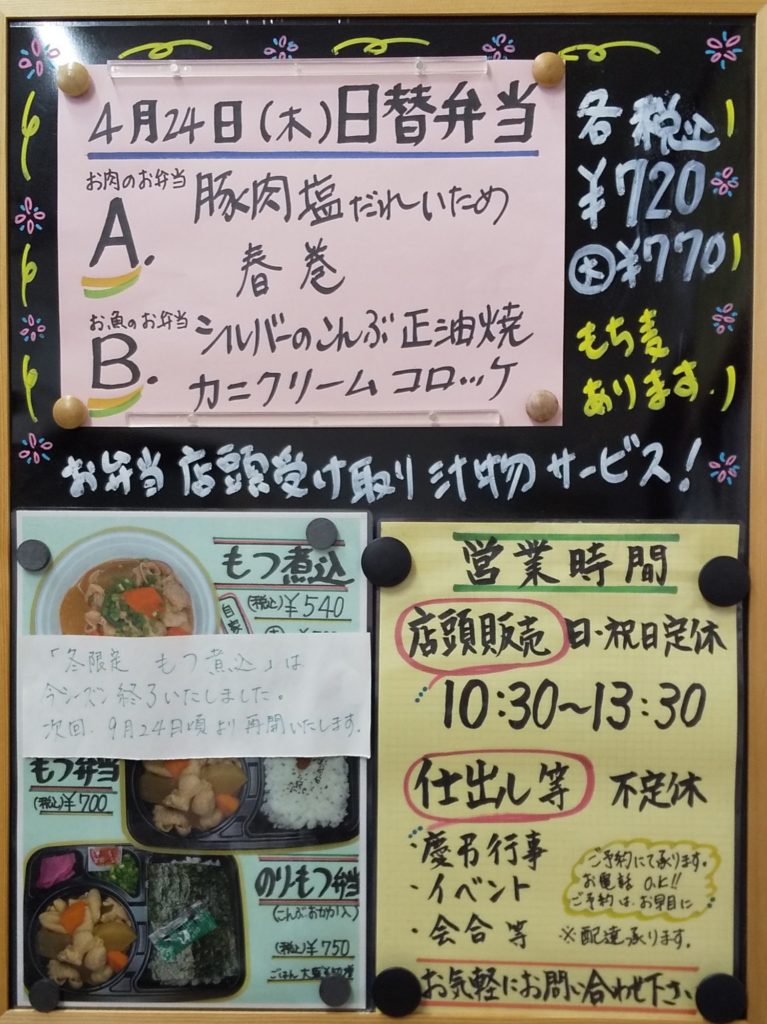 4月24日(木)日替弁当
お肉のお弁当
A.
豚肉塩だれいため
春巻
お魚のお弁当
B.
シルバーのこんぶ正油焼
カニクリームコロッケ
各税込
¥720
大¥770
もち麦
あります.
お弁当店頭受け取り汁物サービス!
もつ煮込
(税込)¥540
自家
「冬限定 もつ煮込」は
今シーズン終了いたしました。
次回、9月24日頃より再開いたします.
もつ弁当
(税込)¥700
のりもつ弁当
(こんぶおかか入)
(税込)¥750
ごはん大盛
営業時間
店頭販売 日・祝日定休
10:30〜13:30
仕出し等 不定休
・慶弔行事
・イベント
・会合等
ご予約にて承ります.
お電話OK!!
ご予約は、お早目に
※配達承ります.
お気軽にお問い合わせ下さい